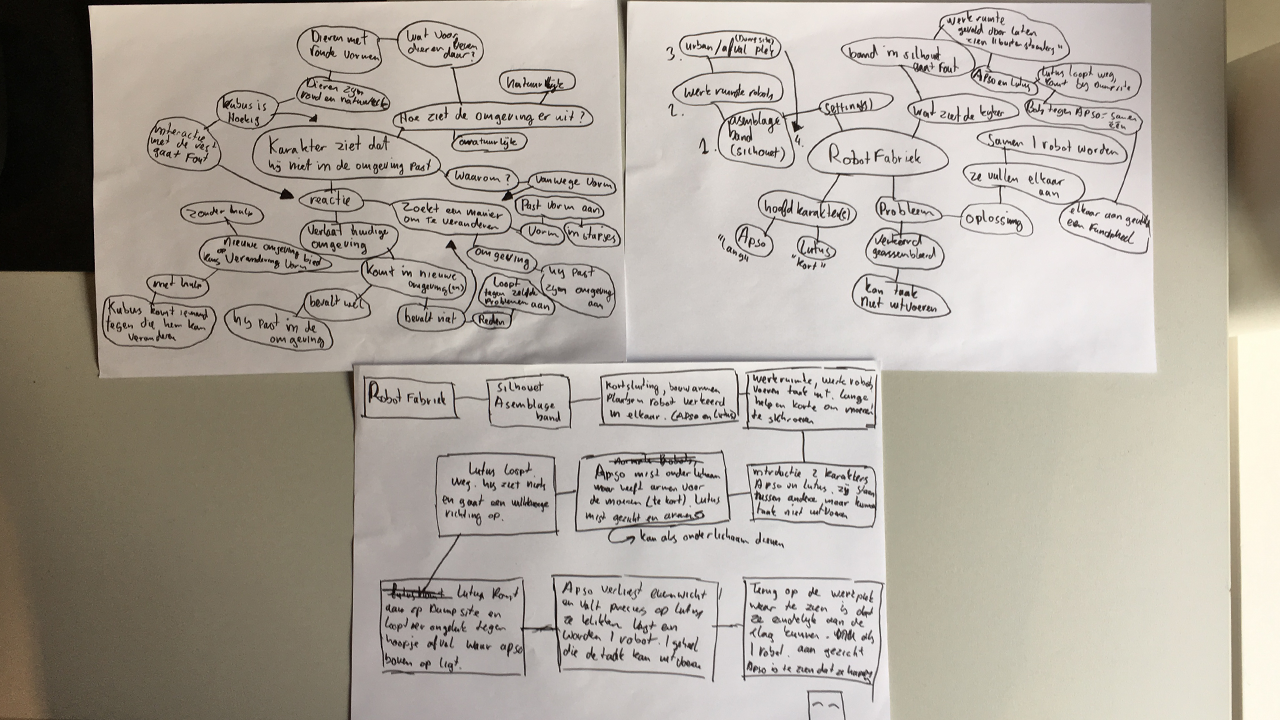 Dieren met
ronde vormen
wat voor
dieren leven
daar?
Dieren zijn
rond en natuurlijk
Natuurlijk
kubus is
Hoekig
Hoe ziet de omgeving er uit?
onnatuurlijk
interactie
met de rest
gaat Fout
Karakter ziet dat
hij niet in de omgeving Past
waarom?
vanwege vorm
reactie
Zoekt een manier
om te veranderen
Past vorm aan
vorm
in stapjes
zonder hulp
Verlaat huidige
omgeving
nieuwe omgeving bied
verandering vorm
omgeving
hij past
zijn omgeving
aan
met hulp
komt in nieuwe
omgeving(en)
Loopt
tegen zelfde
Problemen aan
Kubus komt iemand
tegen die hem kan
veranderen
bevalt wel
hij Past in de
omgeving
bevalt niet
Reden
3.
urban/afval plek
(Dumpsite)
werkruimte
gevuld door laten
zien
band in silhouet
gaat Fout
Apso en Lutus
Lutus loopt weg,
komt bij Dumpsite
Bots tegen Apso = samen
één
2.
werkruimte robots
setting(s)
wat ziet de kijker
1.
assemblage
band
(silhouet)
4.
Robot Fabriek
Samen 1 robot worden
ze vullen elkaar
aan
hoofd karakter(s)
Probleem
oplossing
elkaar aan
een Functioneel
Apso
"Lang"
Lutus
"Kort"
verkeerd
geassembleerd
kan taak
niet uitvoeren
Robot Fabriek
Silhouet
Asemblage
band
Kortsluiting, bouwarmen
plaatsen robot verkeerd
in elkaar. (Apso en Lutus)
werkruimte, werk robots
voeren taak uit. Lange
helpen korte om moeren
te schroeven
introductie 2 karakters
Apso en Lutus. zij staan
tussen andere, maar kunnen
taak niet uitvoeren
Apso mist onderlichaam
maar heeft armen voor
de moeren (te kort). Lutus
mist gezicht en armen
kan als onderlichaam dienen
Lutus Loopt
weg. hij ziet niets
en gaat een willekeurige
richting op.
Lutus komt
aan op Dumpsite en
loopt per ongeluk tegen
hoopje afval waar apso
boven op ligt.
Apso verliest evenwicht
en valt precies op Lutus
ze klikken vast en
worden 1 robot. 1 geheel
die de taak kan uitvoeren
Terug op de werkplek
waar te zien is dat
ze eindelijk aan de
slag kunnen. als
1 robot. aan gezicht
Apso is te zien dat ze happy